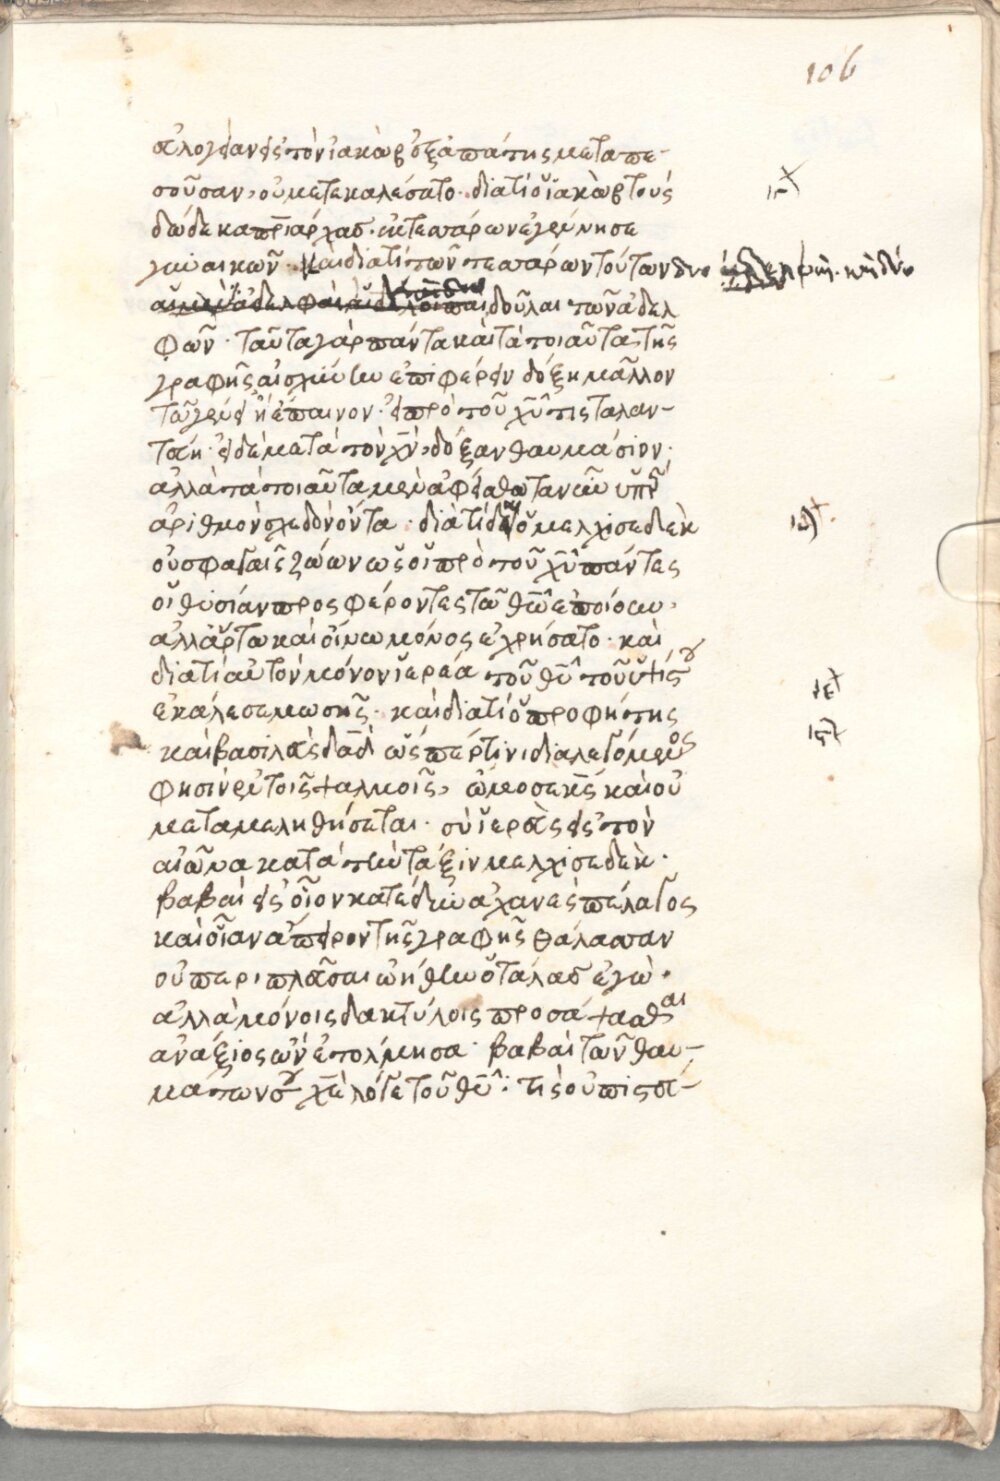 106
εὐλογίαν εἰς τὸν ἰακὼβ ἐξ ἀπάτης μεταπε-
σοῦσαν, οὐ μετεκαλέσατο· διατί ὁ ἰακὼβ τοὺς
δώδεκα πριάρχας· ἐκ τεσσάρων ἐγέννησε
γυναικῶν· καὶ διατί τῶν τεσσάρων τούτων δύο
δοῦλαι τῶν ἀδελ
φῶν· ταῦτα γὰρ πάντα καὶ τὰ τοιαῦτα τῆς
γραφῆς αἰσχύνην ἐπιφέρειν δόξῃ μᾶλλον
τῶ γένει ἢ ἔπαινον· εἰ πρὸ τοῦ χῦ τις ταλαν-
τὸν χν, δόξαν θαυμάσιον·
ἀλλὰ τὰ τοιαῦτα μὲν ἀφείσθω τανῦν ὑπὲρ
ἀριθμὸν σχεδὸν ὄντα· διατί ὁ μελχισεδὲκ
οὐ σφαγαῖς ζώων ὡς οἱ πρὸ τοῦ χῦ πάντες
οἱ θυσίαν προσφέροντες τῶ θῶ ἐποίουν,
ἀλλ' ἄρτω καὶ οἴνω μόνος ἐχρήσατο· καὶ
διατί αὐτὸν μόνον ἱερέα τοῦ θῦ τοῦ ὑψίςου
ἐκάλεσε μωσῆς· καὶ διατί ὁ προφήτης
καὶ βασιλεὺς δαδ ὥσπερ τινὶ διαλεγόμενος
φησὶν ἐν τοῖς ψαλμοῖς, ὤμοσε κς καὶ οὐ
μεταμεληθήσεται· σὺ ἱερεὺς εἰς τὸν
αἰῶνα κατὰ τὴν τάξιν μελχισεδέκ·
βαβαὶ εἰς οἷον κατέδυν ἀχανὲς πέλαγος
καὶ οἵαν ἄπειρον τῆς γραφῆς θάλασσαν
οὐ περιπλεῦσαι ὠήθην ὁ τάλας ἐγὼ·
ἀλλὰ μόνοις δακτύλοις προσάψασθαι
ἀνάξιος ὢν ἐτόλμησα· βαβαὶ τῶν θαυ-
μάτων σου χὲ λόγε τοῦ θῦ· τίς οὐ πιςεύ-